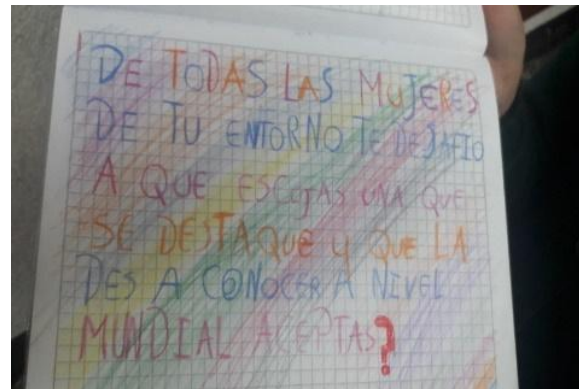 DE TODAS LAS MUJERES
DE TU ENTORNO TE DESAFIO
A QUE ESCOJAS UNA QUE
SE DESTAQUE Y QUE LA
DES A CONOCER A NIVEL
MUNDIAL ACEPTAS?